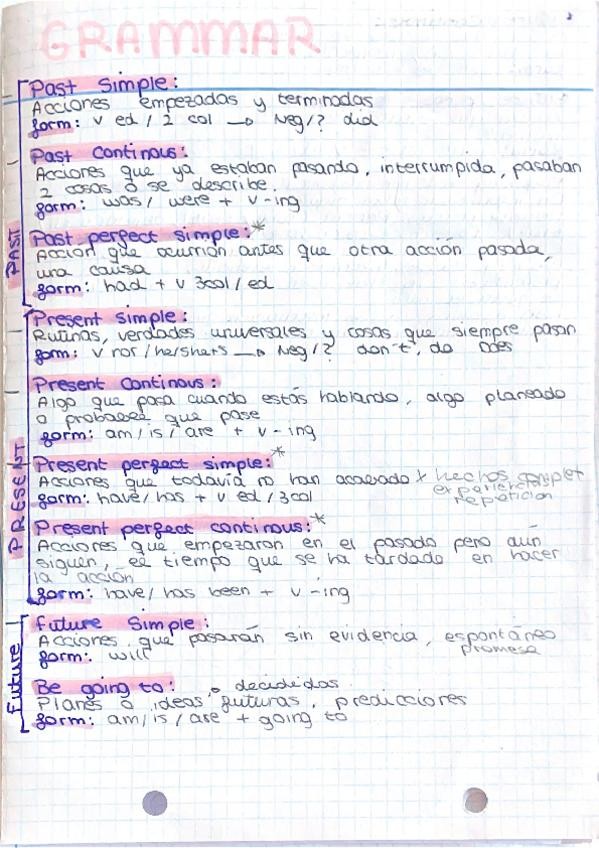 GRAMMAR
PAST
Past Simple:
Acciones empezadas y terminadas
form: v ed / 2 col → Neg/? did
Past Continous:
Acciones que ya estaban pasando, interrumpida, pasaban
2 cosas o se describe.
form: was / were + v-ing
Past perfect simple:*
Acción que ocurrión antes que otra acción pasada,
una causa
form: had + v 3col / ed
PRESENT
Present simple:
Rutinas, verdades universales y cosas que siempre pasan
form: v / he/she + s → Neg/? don't, do Does
Present Continous:
Algo que pasa cuando estás hablando, algo planeado
o probable que pase
form: am / is / are + v - ing
Present perfect simple:*
Acciones que todavía no han acabado + hechos complet
experiencia
repeticion
form: have / has + v ed / 3col
Present perfect continous:*
Acciones que empezaron en el pasado pero aún
siguen, el tiempo que se ha tardado en hacer
la acción
form: have / has been + v -ing
Future
future Simple:
Acciones que pasarán sin evidencia, espontáneo
promesa
form: will
Be going to: decididas
Planes o ideas futuras, predicciones
form: am / is / are + going to